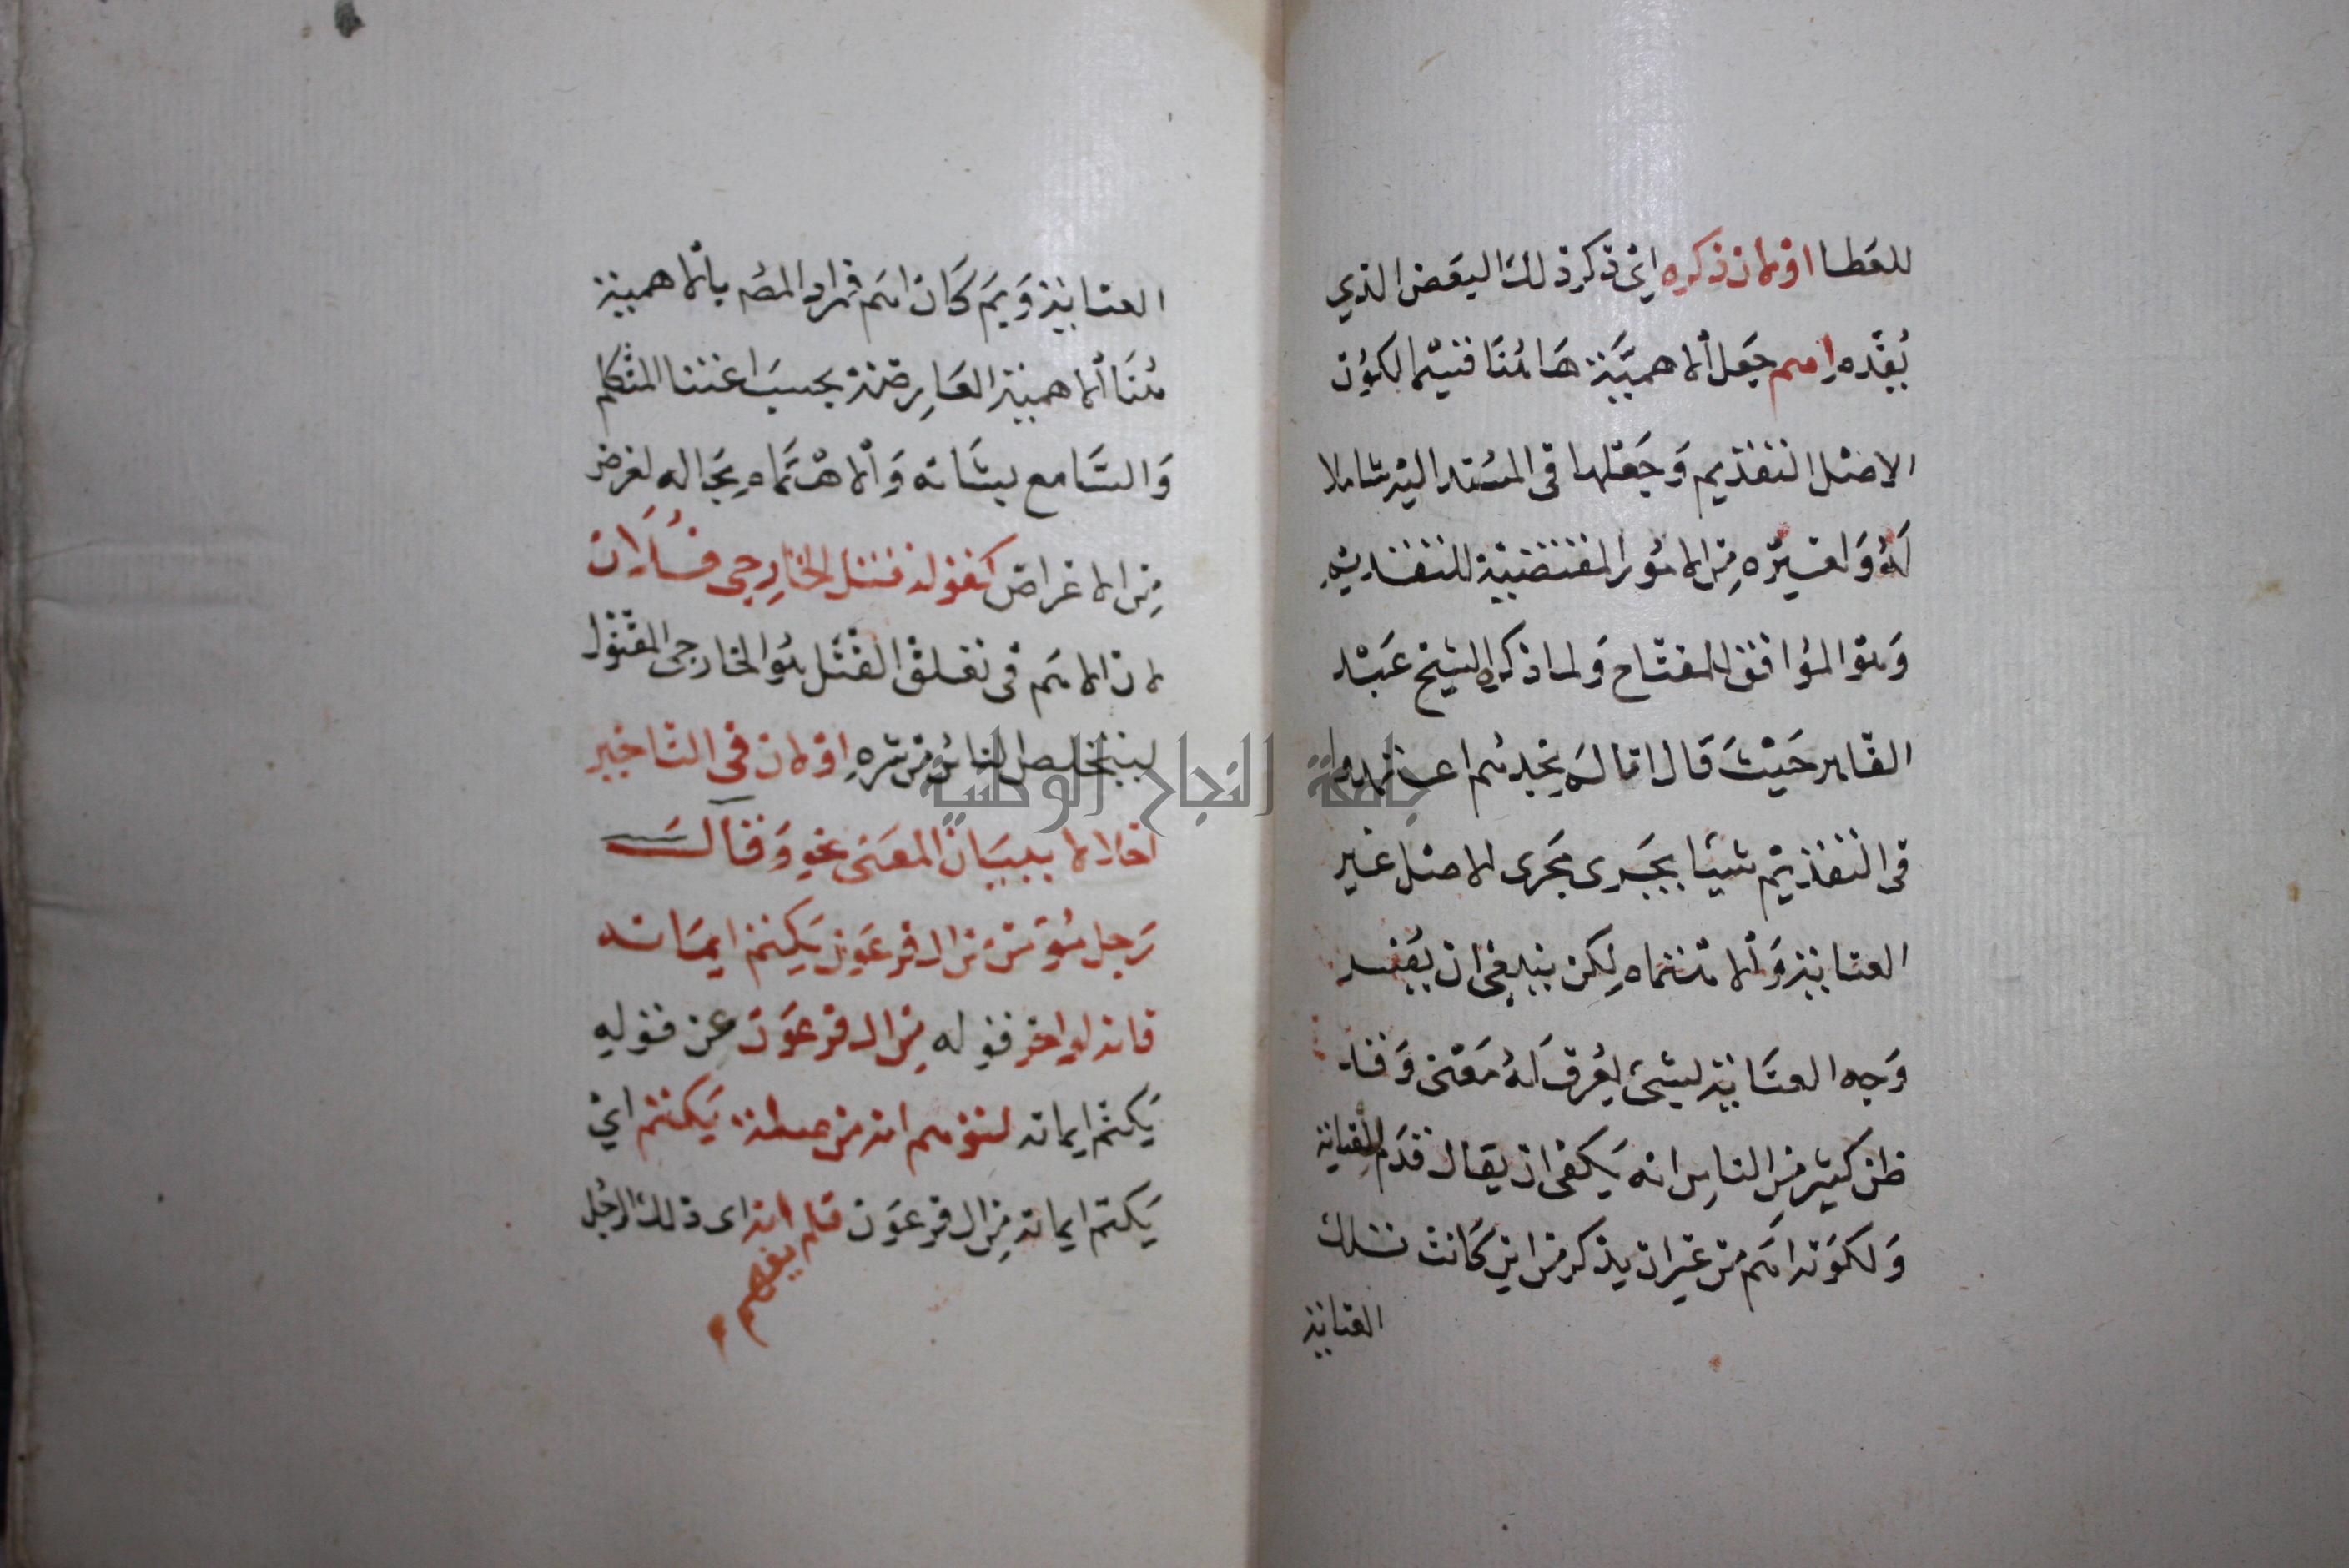 للعطا اولان ذكره اي ذكر ذلك البعض الذي
يقدم اهم جعل الاهمية هاهنا قسيما لكون
الاصل التقديم وجعلها في المسند اليه شاملا
له ولغيره من الامور المقتضية للتقديم
وهو الموافق للمفتاح ولما ذكره الشيخ عبد
القاهر حيث قال انا لم نجدهم اعتمدوا
في التقديم شيئا يجري مجرى الاصل غير
العناية والاهتمام لكن ينبغي ان يفسر
وجه العناية لشيء يعرف له معنى وقد
ظن كثير من الناس انه يكفي ان يقال قدم للعناية
ولكونه اهم من غير ان يذكر من اين كانت تلك
العناية
العناية وبم كان اهم فمراد المص بالاهمية
هنا الاهمية العارضة بحسب اعتنا المتكلم
والسامع بشانه والاهتمام بحاله لغرض
من الاغراض كقولك قتل الخارجي فلان
لان الاهم في تعلق القتل هو الخارجي المقتول
ليتخلص الناس من شره اولان في التاخير
اخلالا ببيان المعنى نحو وقال
رجل مؤمن من ال فرعون يكتم ايمانه
فانه لو اخر قوله من ال فرعون عن قوله
يكتم ايمانه لتوهم انه من صلة يكتم اي
يكتم ايمانه من ال فرعون فلم يفهم انه اي ذلك الرجل
جامعة النجاح الوطنية